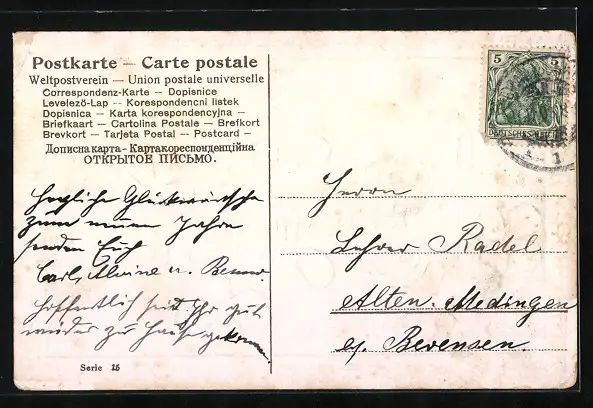 Postkarte — Carte postale
Weltpostverein — Union postale universelle
Correspondenz-Karte — Dopisnice
Levelező-Lap -- Korespondencni listek
Dopisnica — Karta korespondencyjna —
Briefkaart — Cartolina Postale — Brefkort
Brevkort — Tarjeta Postal — Postcard —
Дописна карта - Картакореспонденційна
ОТКРЫТОЕ ПИСЬМО.
5 5
DEUTSCHES REICH
Herzliche Glückwünsche
zum neuen Jahre
senden Euch
Carl, Alwine u. Benno.
Hoffentlich seid Ihr gut
wieder zu Hause gekommen.
Herrn
Lehrer Radel
Alten-Medingen
b/ Bevensen.
Serie 15